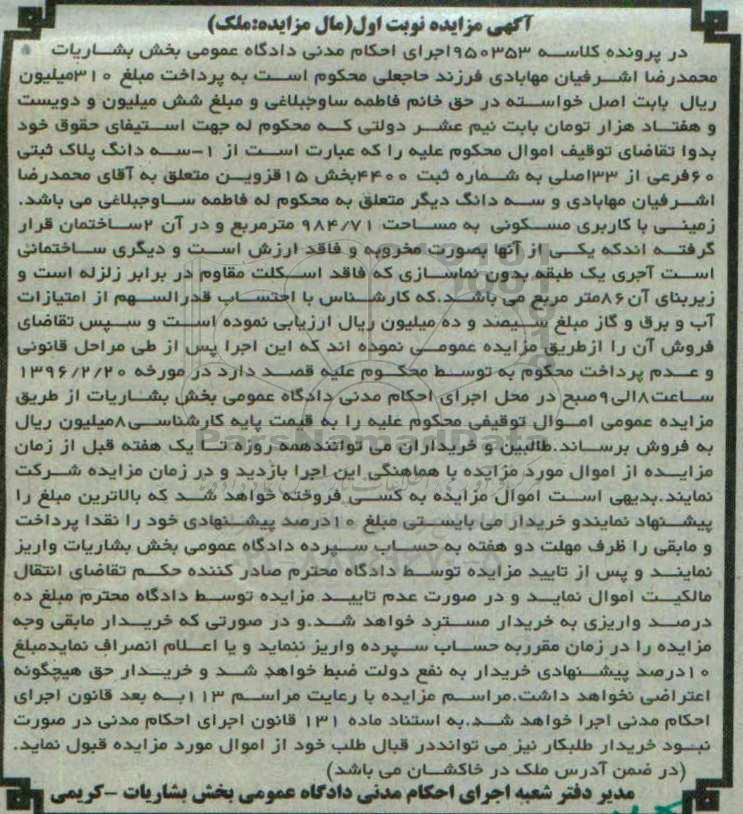 آگهی مزایده نوبت اول(مال مزایده:ملک)
در پرونده کلاسه ۹۵۰۳۵۳اجرای احکام مدنی دادگاه عمومی بخش بشاریات
محمدرضا اشرفیان مهابادی فرزند حاجعلی محکوم است به پرداخت مبلغ ۳۱۰میلیون
ریال بابت اصل خواسته در حق خانم فاطمه ساوجبلاغی و مبلغ شش میلیون و دویست
و هفتاد هزار تومان بابت نیم عشر دولتی که محکوم له جهت استیفای حقوق خود
بدوا تقاضای توقیف اموال محکوم علیه را که عبارت است از ۱-سه دانگ پلاک ثبتی
۶۰فرعی از ۳۳اصلی به شماره ثبت ۴۴۰۰بخش ۱۵قزوین متعلق به آقای محمدرضا
اشرفیان مهابادی و سه دانگ دیگر متعلق به محکوم له فاطمه ساوجبلاغی می باشد.
زمینی با کاربری مسکونی به مساحت ۹۸۴/۷۱ مترمربع و در آن ۲ساختمان قرار
گرفته اندکه یکی از آنها بصورت مخروبه و فاقد ارزش است و دیگری ساختمانی
است آجری یک طبقه بدون نماسازی که فاقد اسکلت مقاوم در برابر زلزله است و
زیربنای آن ۸۶متر مربع می باشد.که کارشناس با احتساب قدرالسهم از امتیازات
آب و برق و گاز مبلغ سیصد و ده میلیون ریال ارزیابی نموده است و سپس تقاضای
فروش آن را ازطریق مزایده عمومی نموده اند که این اجرا پس از طی مراحل قانونی
و عدم پرداخت محکوم به توسط محکوم علیه قصد دارد در مورخه ۱۳۹۶/۲/۲۰
ساعت۸الی۹صبح در محل اجرای احکام مدنی دادگاه عمومی بخش بشاریات از طریق
مزایده عمومی اموال توقیفی محکوم علیه را به قیمت پایه کارشناسی۸میلیون ریال
به فروش برساند.طالبین و خریداران می توانندهمه روزه تا یک هفته قبل از زمان
مزایده از اموال مورد مزایده با هماهنگی این اجرا بازدید و در زمان مزایده شرکت
نمایند.بدیهی است اموال مزایده به کسی فروخته خواهد شد که بالاترین مبلغ را
پیشنهاد نمایندو خریدار می بایستی مبلغ ۱۰درصد پیشنهادی خود را نقدا پرداخت
و مابقی را ظرف مهلت دو هفته به حساب سپرده دادگاه عمومی بخش بشاریات واریز
نمایند و پس از تایید مزایده توسط دادگاه محترم صادر کننده حکم تقاضای انتقال
مالکیت اموال نماید و در صورت عدم تایید مزایده توسط دادگاه محترم مبلغ ده
درصد واریزی به خریدار مسترد خواهد شد.و در صورتی که خریدار مابقی وجه
مزایده را در زمان مقرربه حساب سپرده واریز ننماید و یا اعلام انصراف نمایدمبلغ
۱۰درصد پیشنهادی خریدار به نفع دولت ضبط خواهد شد و خریدار حق هیچگونه
اعتراضی نخواهد داشت.مراسم مزایده با رعایت مراسم ۱۱۳به بعد قانون اجرای
احکام مدنی اجرا خواهد شد.به استناد ماده ۱۳۱ قانون اجرای احکام مدنی در صورت
نبود خریدار طلبکار نیز می توانددر قبال طلب خود از اموال مورد مزایده قبول نماید.
(در ضمن آدرس ملک در خاکشان می باشد)
مدیر دفتر شعبه اجرای احکام مدنی دادگاه عمومی بخش بشاریات -کریمی
ParsNamadData